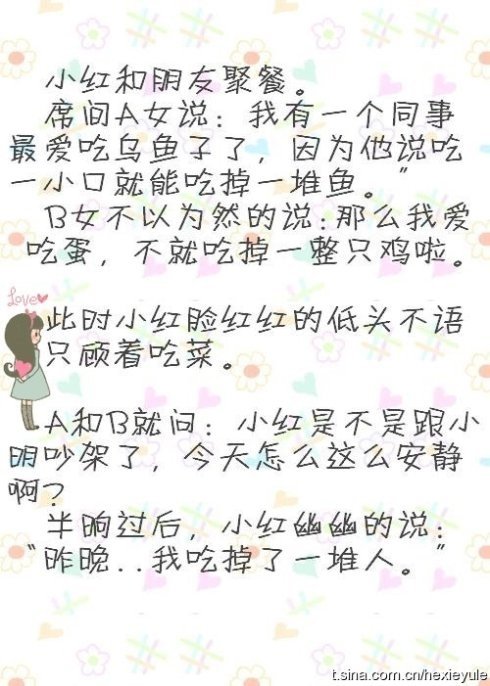 小红和朋友聚餐。
席间A女说：我有一个同事
最爱吃乌鱼子了，因为他说吃
一小口就能吃掉一堆鱼。”
B女不以为然的说：那么我爱
吃蛋，不就吃掉一整只鸡啦。
Love
此时小红脸红红的低头不语
只顾着吃菜。
A和B就问：小红是不是跟小
明吵架了，今天怎么这么安静
啊？
半晌过后，小红幽幽的说：
“昨晚..我吃掉了一堆人。”
t.sina.com.cn/hexieyule